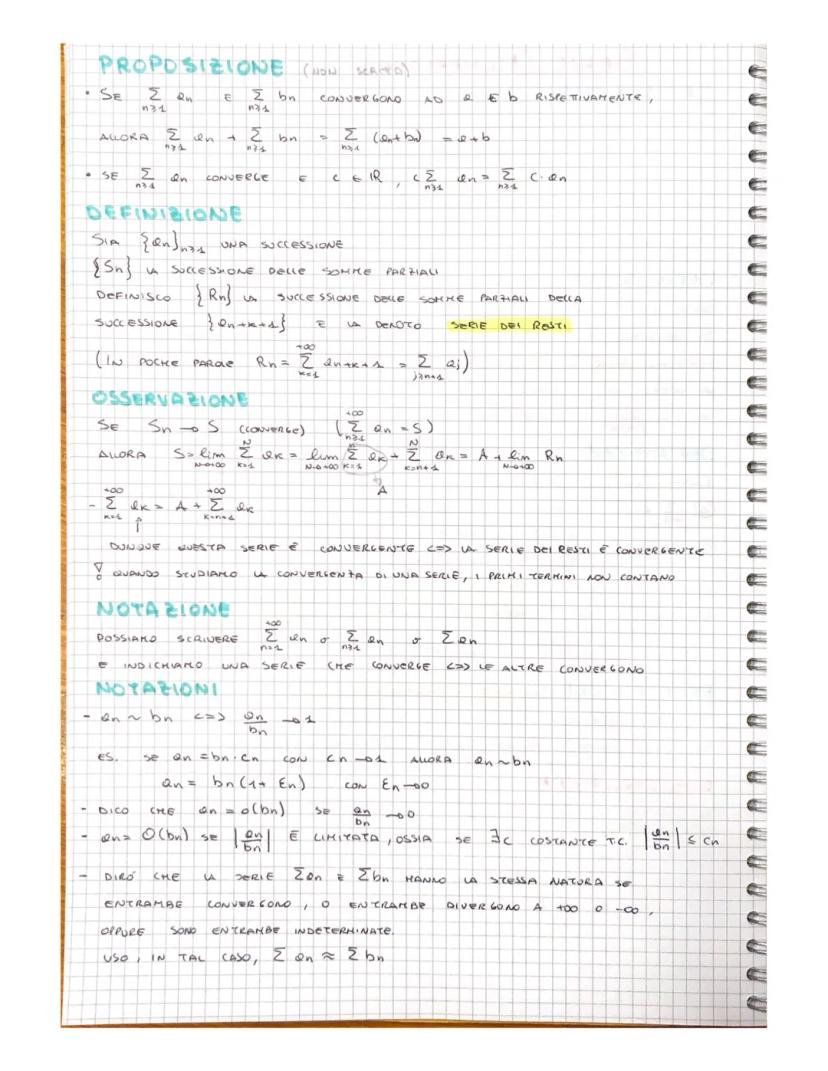 PROPOSIZIONE (NON SCRITTO)
• SE Σ_{n≥1} an E Σ_{n≥1} bn CONVERGONO AD a E b RISPETTIVAMENTE,
ALLORA Σ_{n≥1} an + Σ_{n≥1} bn = Σ_{n≥1} (an+bn) = a+b
• SE Σ_{n≥1} an CONVERGE E C ∈ ℝ, C Σ_{n≥1} an = Σ_{n≥1} C·an
DEFINIZIONE
SIA {an}_{n≥1} UNA SUCCESSIONE
{Sn} LA SUCCESSIONE DELLE SOMME PARZIALI
DEFINISCO {Rn} LA SUCCESSIONE DELLE SOMME PARZIALI DELLA
SUCCESSIONE {an+k+1} E LA DENOTO SERIE DEI RESTI
(IN POCHE PAROLE Rn = Σ_{k=1}^{+∞} an+k+1 = Σ_{j≥n+1} aj)
OSSERVAZIONE
SE Sn → S (CONVERGE) (Σ_{n≥1}^{+∞} an = S)
ALLORA S = lim_{N→+∞} Σ_{k=1}^{N} ak = lim_{N→+∞} Σ_{k=1}^{n} ak + Σ_{k=n+1}^{N} ak = A + lim_{N→+∞} Rn
A
- Σ_{k=1}^{+∞} ak = A + Σ_{k=n+1}^{+∞} ak
↑
DUNQUE QUESTA SERIE È CONVERGENTE <=> LA SERIE DEI RESTI È CONVERGENTE
! QUANDO STUDIAMO LA CONVERGENZA DI UNA SERIE, I PRIMI TERMINI NON CONTANO
NOTAZIONE
POSSIAMO SCRIVERE Σ_{n=1}^{+∞} an o Σ_{n≥1} an o Σ an
E INDICHIAMO UNA SERIE CHE CONVERGE <=> LE ALTRE CONVERGONO
NOTAZIONI
- an ~ bn <=> an/bn → 1
ES. se an = bn·Cn CON Cn → 1 ALLORA an ~ bn
an = bn(1+ εn) CON εn → 0
- DICO CHE an = o(bn) SE an/bn → 0
- an = O(bn) SE |an/bn| È LIMITATA, OSSIA SE ∃c COSTANTE T.C. |an/bn| ≤ Cn
- DIRÒ CHE LA SERIE Σan E Σbn HANNO LA STESSA NATURA SE
ENTRAMBE CONVERGONO, O ENTRAMBE DIVERGONO A +∞ O -∞,
OPPURE SONO ENTRAMBE INDETERMINATE.
USO, IN TAL CASO, Σ an ≈ Σ bn